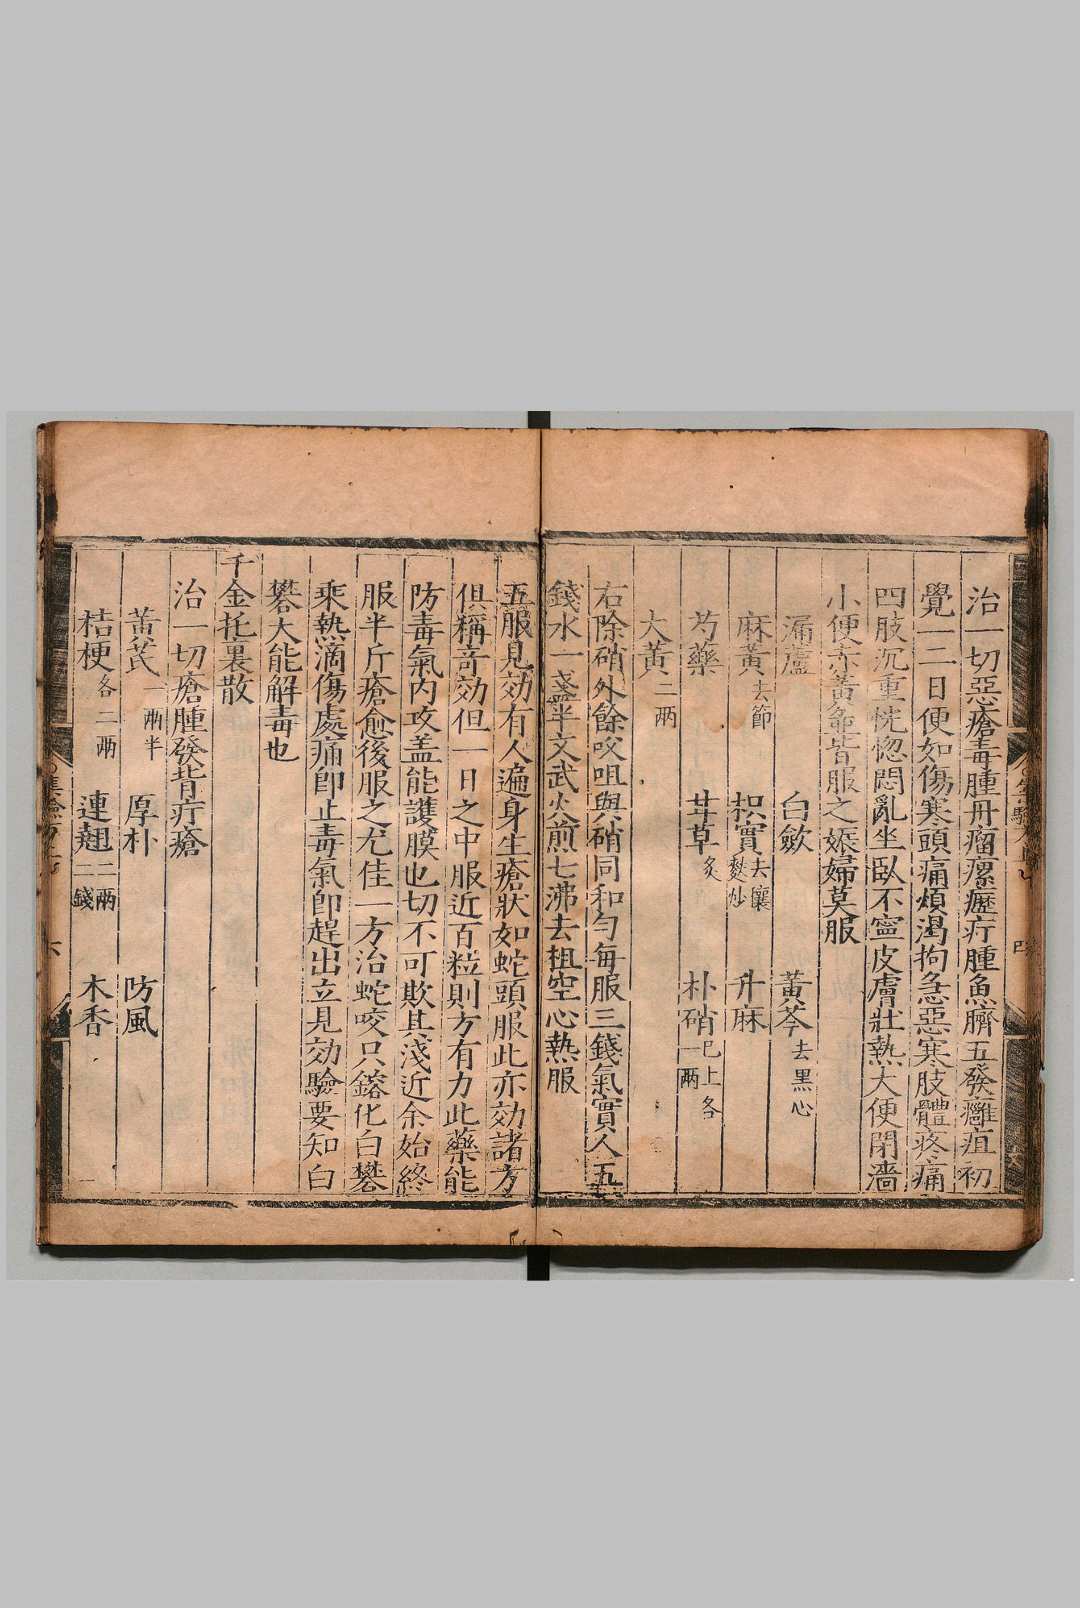 治一切惡瘡毒腫丹瘤瘰癧疔腫魚臍五發癰疽初
覺一二日便如傷寒頭痛煩渴拘急惡寒肢體疼痛
四肢沉重恍惚悶亂坐臥不寧皮膚壯熱大便閉濇
小便赤黃並皆服之娠婦莫服
漏蘆 白斂 黃芩去黑心
麻黃去節 枳實去穰麩炒 升麻
芍藥 甘草炙 朴硝已上各一兩
大黃二兩
右除硝外餘㕮咀與硝同和勻每服三錢氣實人五
錢水一盞半文武火煎七沸去柤空心熱服
五服見効有人遍身生瘡狀如蛇頭服此亦効諸方
俱稱奇効但一日之中服近百粒則方有力此藥能
防毒氣內攻盖能護膜也切不可欺其淺近余始終
服半斤瘡愈後服之尤佳一方治蛇咬只鎔化白礬
乘熱滴傷處痛即止毒氣即趕出立見効驗要知白
礬大能解毒也
千金托裏散
治一切瘡腫發背疔瘡
黃芪一兩半 厚朴 防風
桔梗各二兩 連翹二兩二錢 木香
六